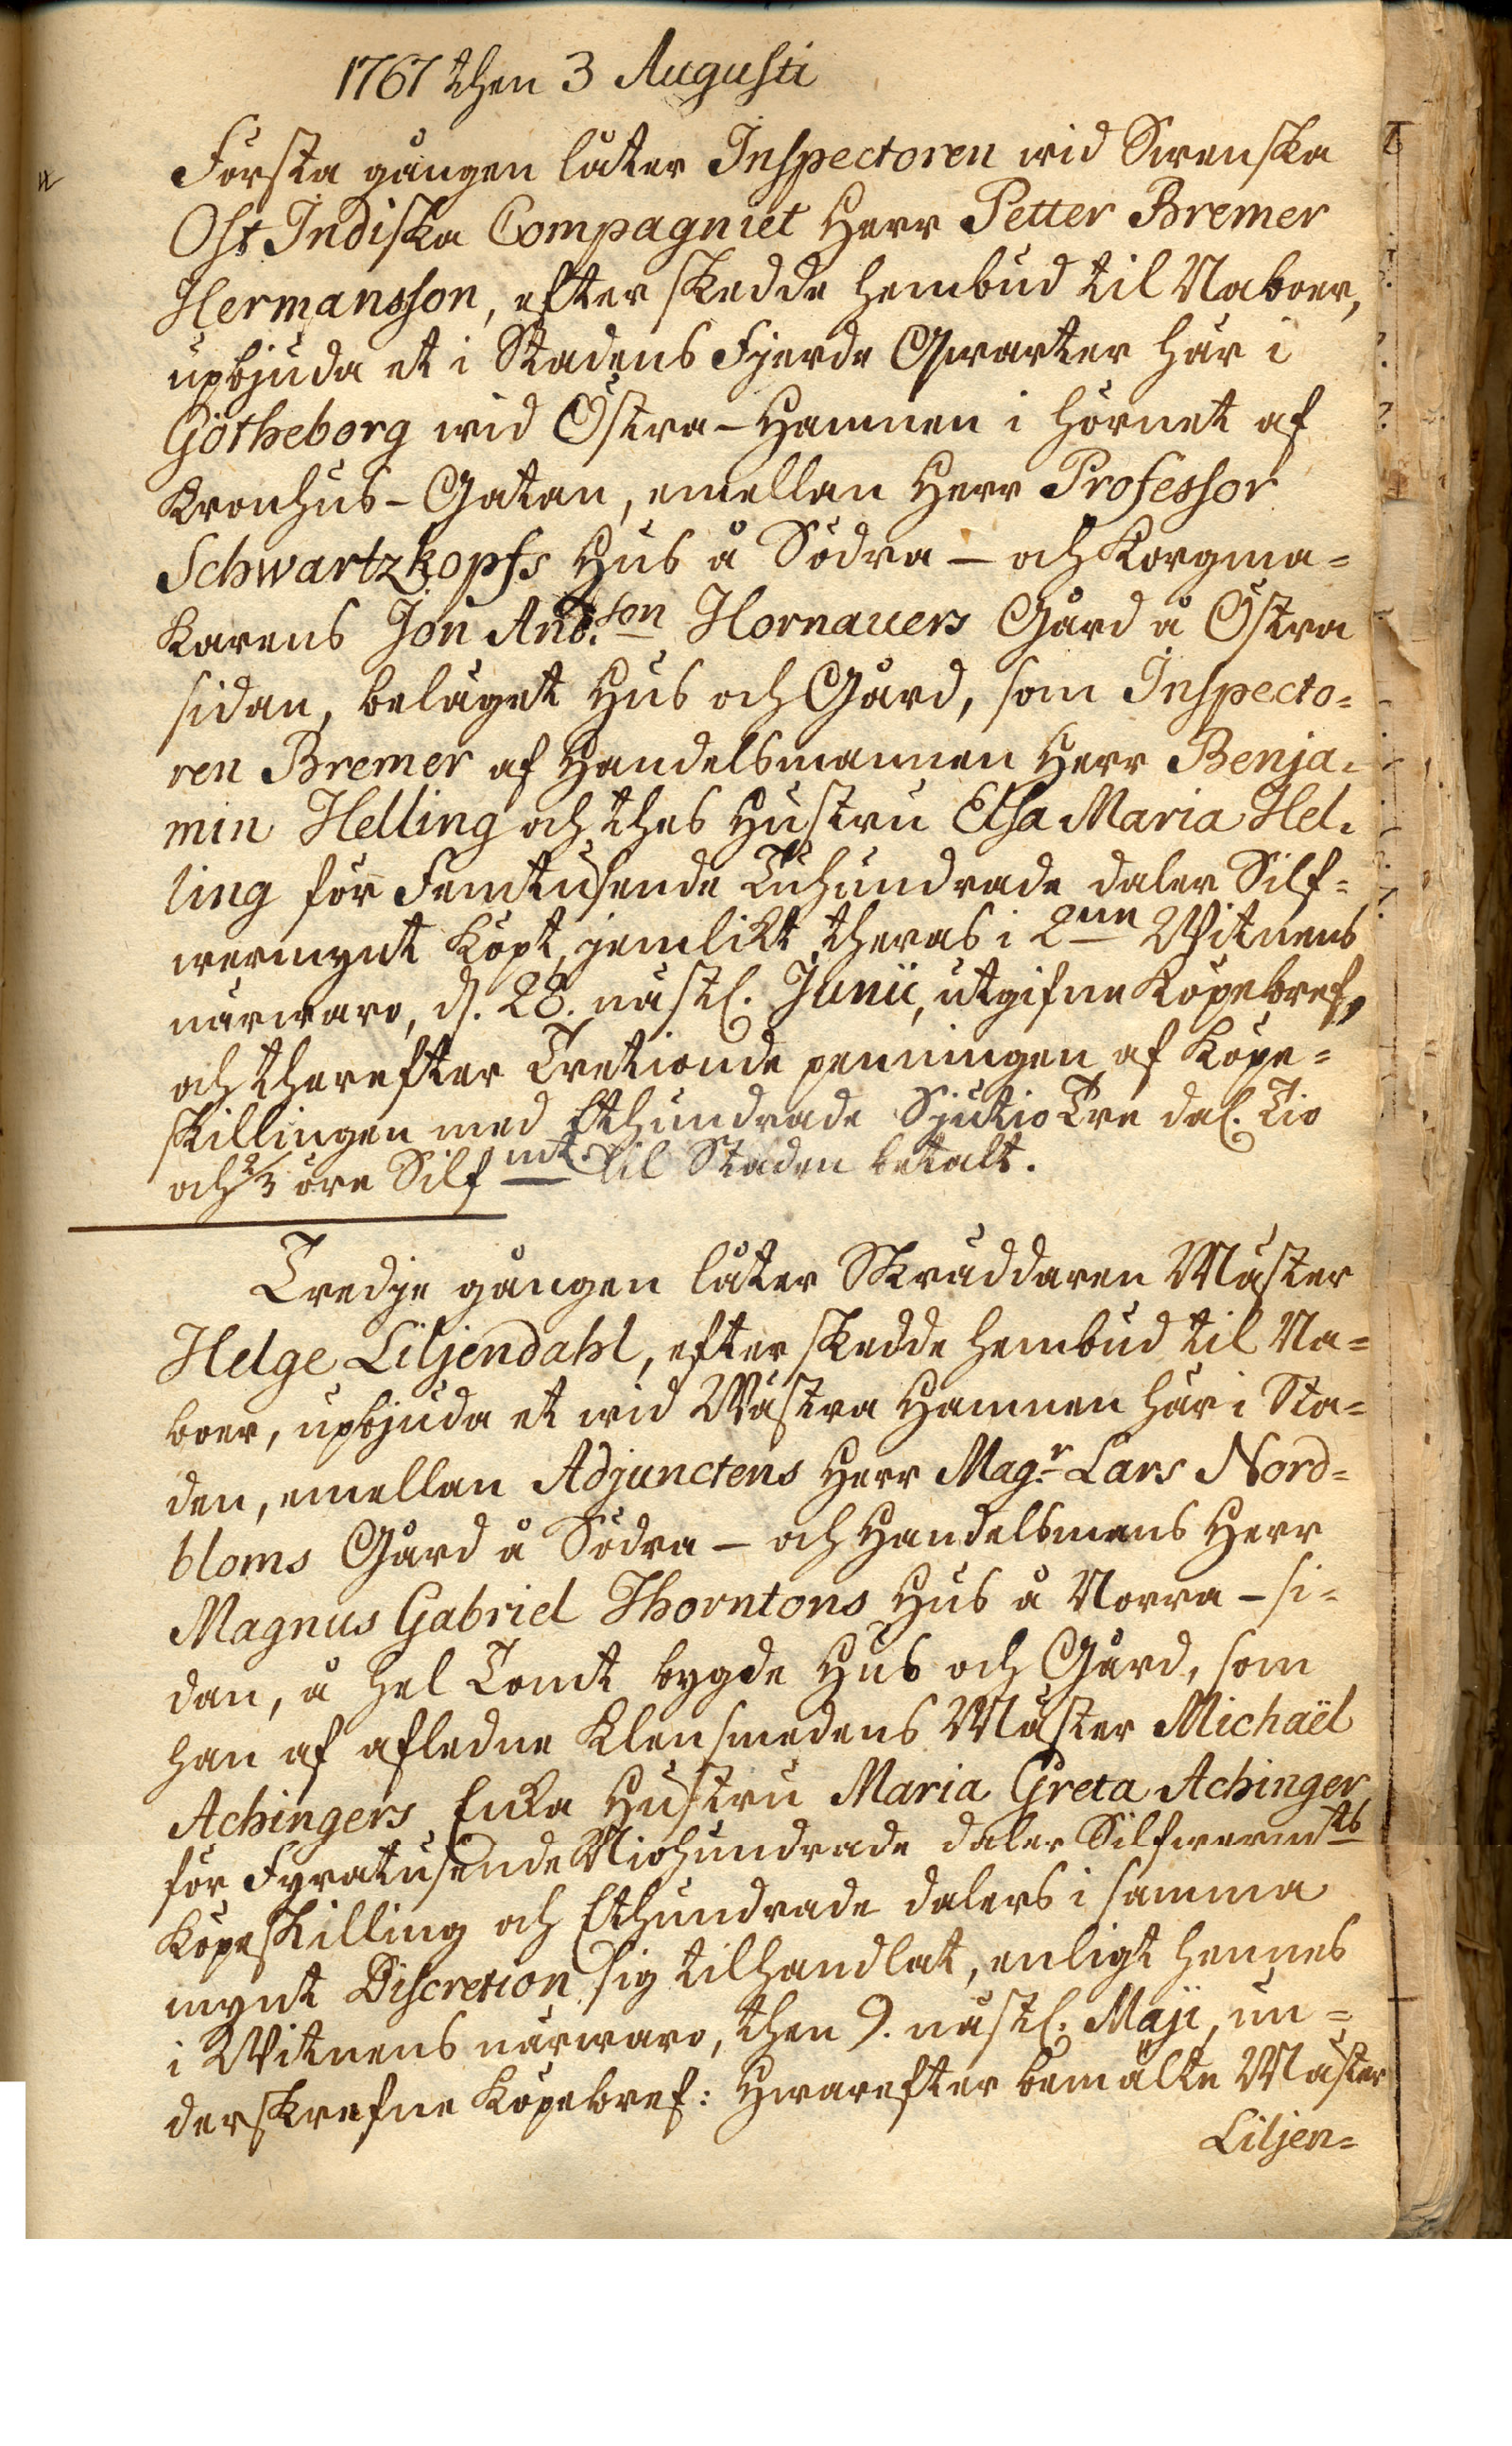 1767 then 3 Augusti
Första gången låter Inspectoren wid Swenska
Ost Indiska Compagniet Herr Petter Bremer
Hermansson, efter skedde hembud til Naboer,
upbjuda et i Stadens Fjerde Qwarter här i
Götheborg wid Östra-Hamnen i hörnet af
Kronhus-Gatan, emellan Herr Professor
Schwartzkopfs Hus å Södra - och Korgma=
karens Jon And:son Hornauers Gård å Östra
sidan, belägit Hus och Gård, som Inspecto=
ren Bremer af Handelsmannen Herr Benja=
min Helling och thes Hustru Elsa Maria Hel=
ling för Femtusende Tuhundrade daler Silf=
wermynt köpt, jemlikt theras i 2ne Witnens
närwaro, d. 28. nästl. Junii, utgifne Köpebref,
och therefter Tretionde penningen af Köpe=
skillingen med Ethundrade Sjutio Tre dal. Tio
och 2/3 öre Silfmt. til Staden betalt.
Tredje gången låter Skräddaren Mäster
Helge Liljendahl, efter skedde hembud til Na=
boer, upbjuda et wid Wästra Hamnen här i Sta=
den, emellan Adjunctens Herr Magr Lars Nord=
bloms Gård å Södra - och Handelsmans Herr
Magnus Gabriel Thorntons Hus å Norra - si=
dan, å hel Tomt bygde Hus och Gård, som
han af afledne Klensmedens Mäster Michaël
Achingers Enka Hustru Maria Greta Achinger
för Fyratusende Niohundrade daler Silfwermts
Köpeskilling och Ethundrade dalers i samma
mynt Discretion sig tilhandlat, enligt hennes
i Witnens närwaro, then 9. nästl. Maji, un=
derskrefne Köpebref: Hwarefter bemälte Mäster
Liljen=